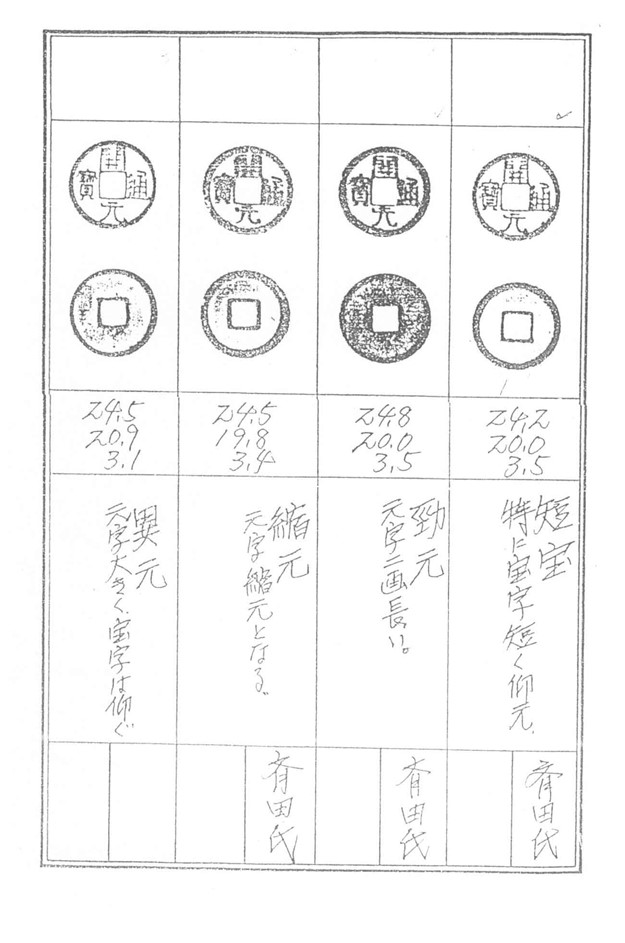 開元通寳
24.2
20.0
3.5
短宝
特に宝字短く仰元、
斉田氏
開元通寳
24.8
20.0
3.5
勁元
元字二画長い。
斉田氏
開元通寳
24.5
19.8
3.4
縮元
元字縮元となる。
斉田氏
開元通寳
24.5
20.9
3.1
異元
元字大きく、宝字は仰ぐ